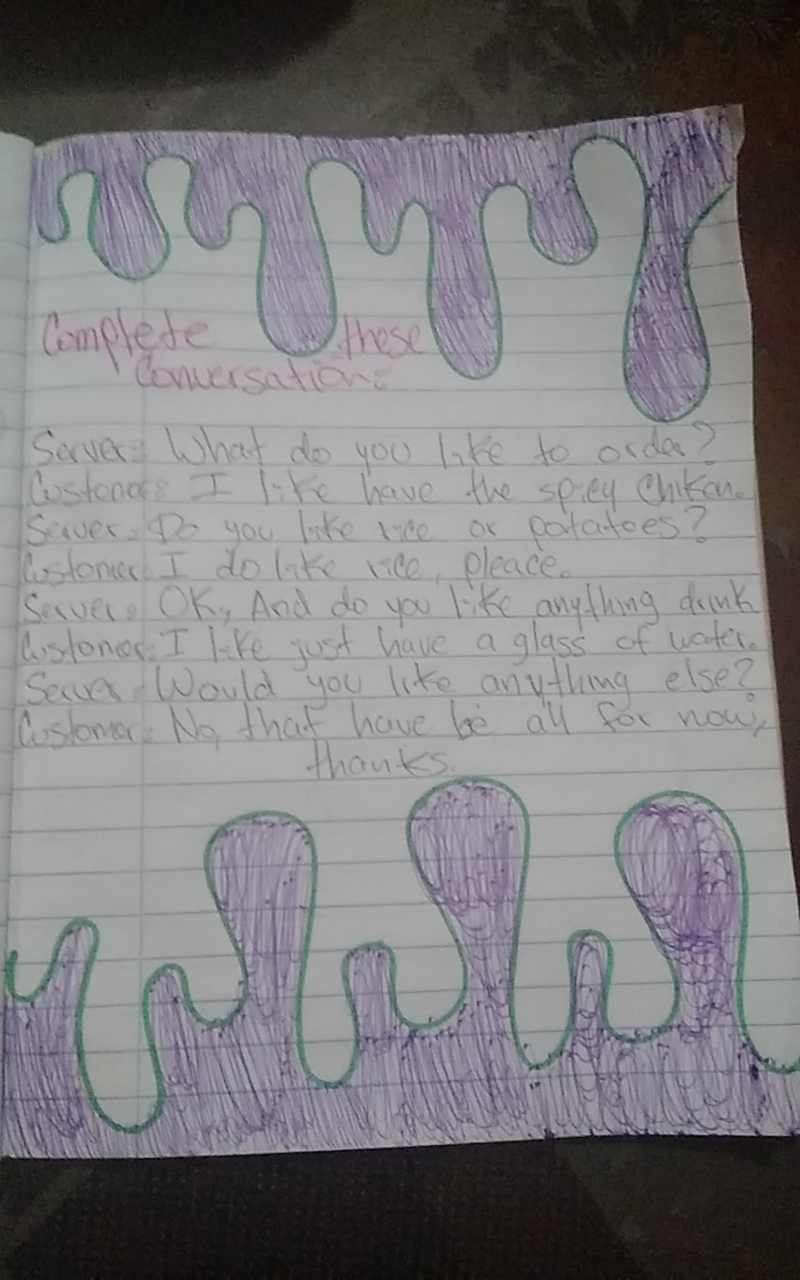 Complete these
Conversation:
Server: What do you like to order?
Customer: I like have the spicy chiken.
Server: Do you like rice or potatoes?
Customer: I do like rice, pleace.
Server: OK, And do you like anything drink
Customer: I like just have a glass of water.
Server: Would you like anything else?
Customer: No, that have be all for now,
thanks.